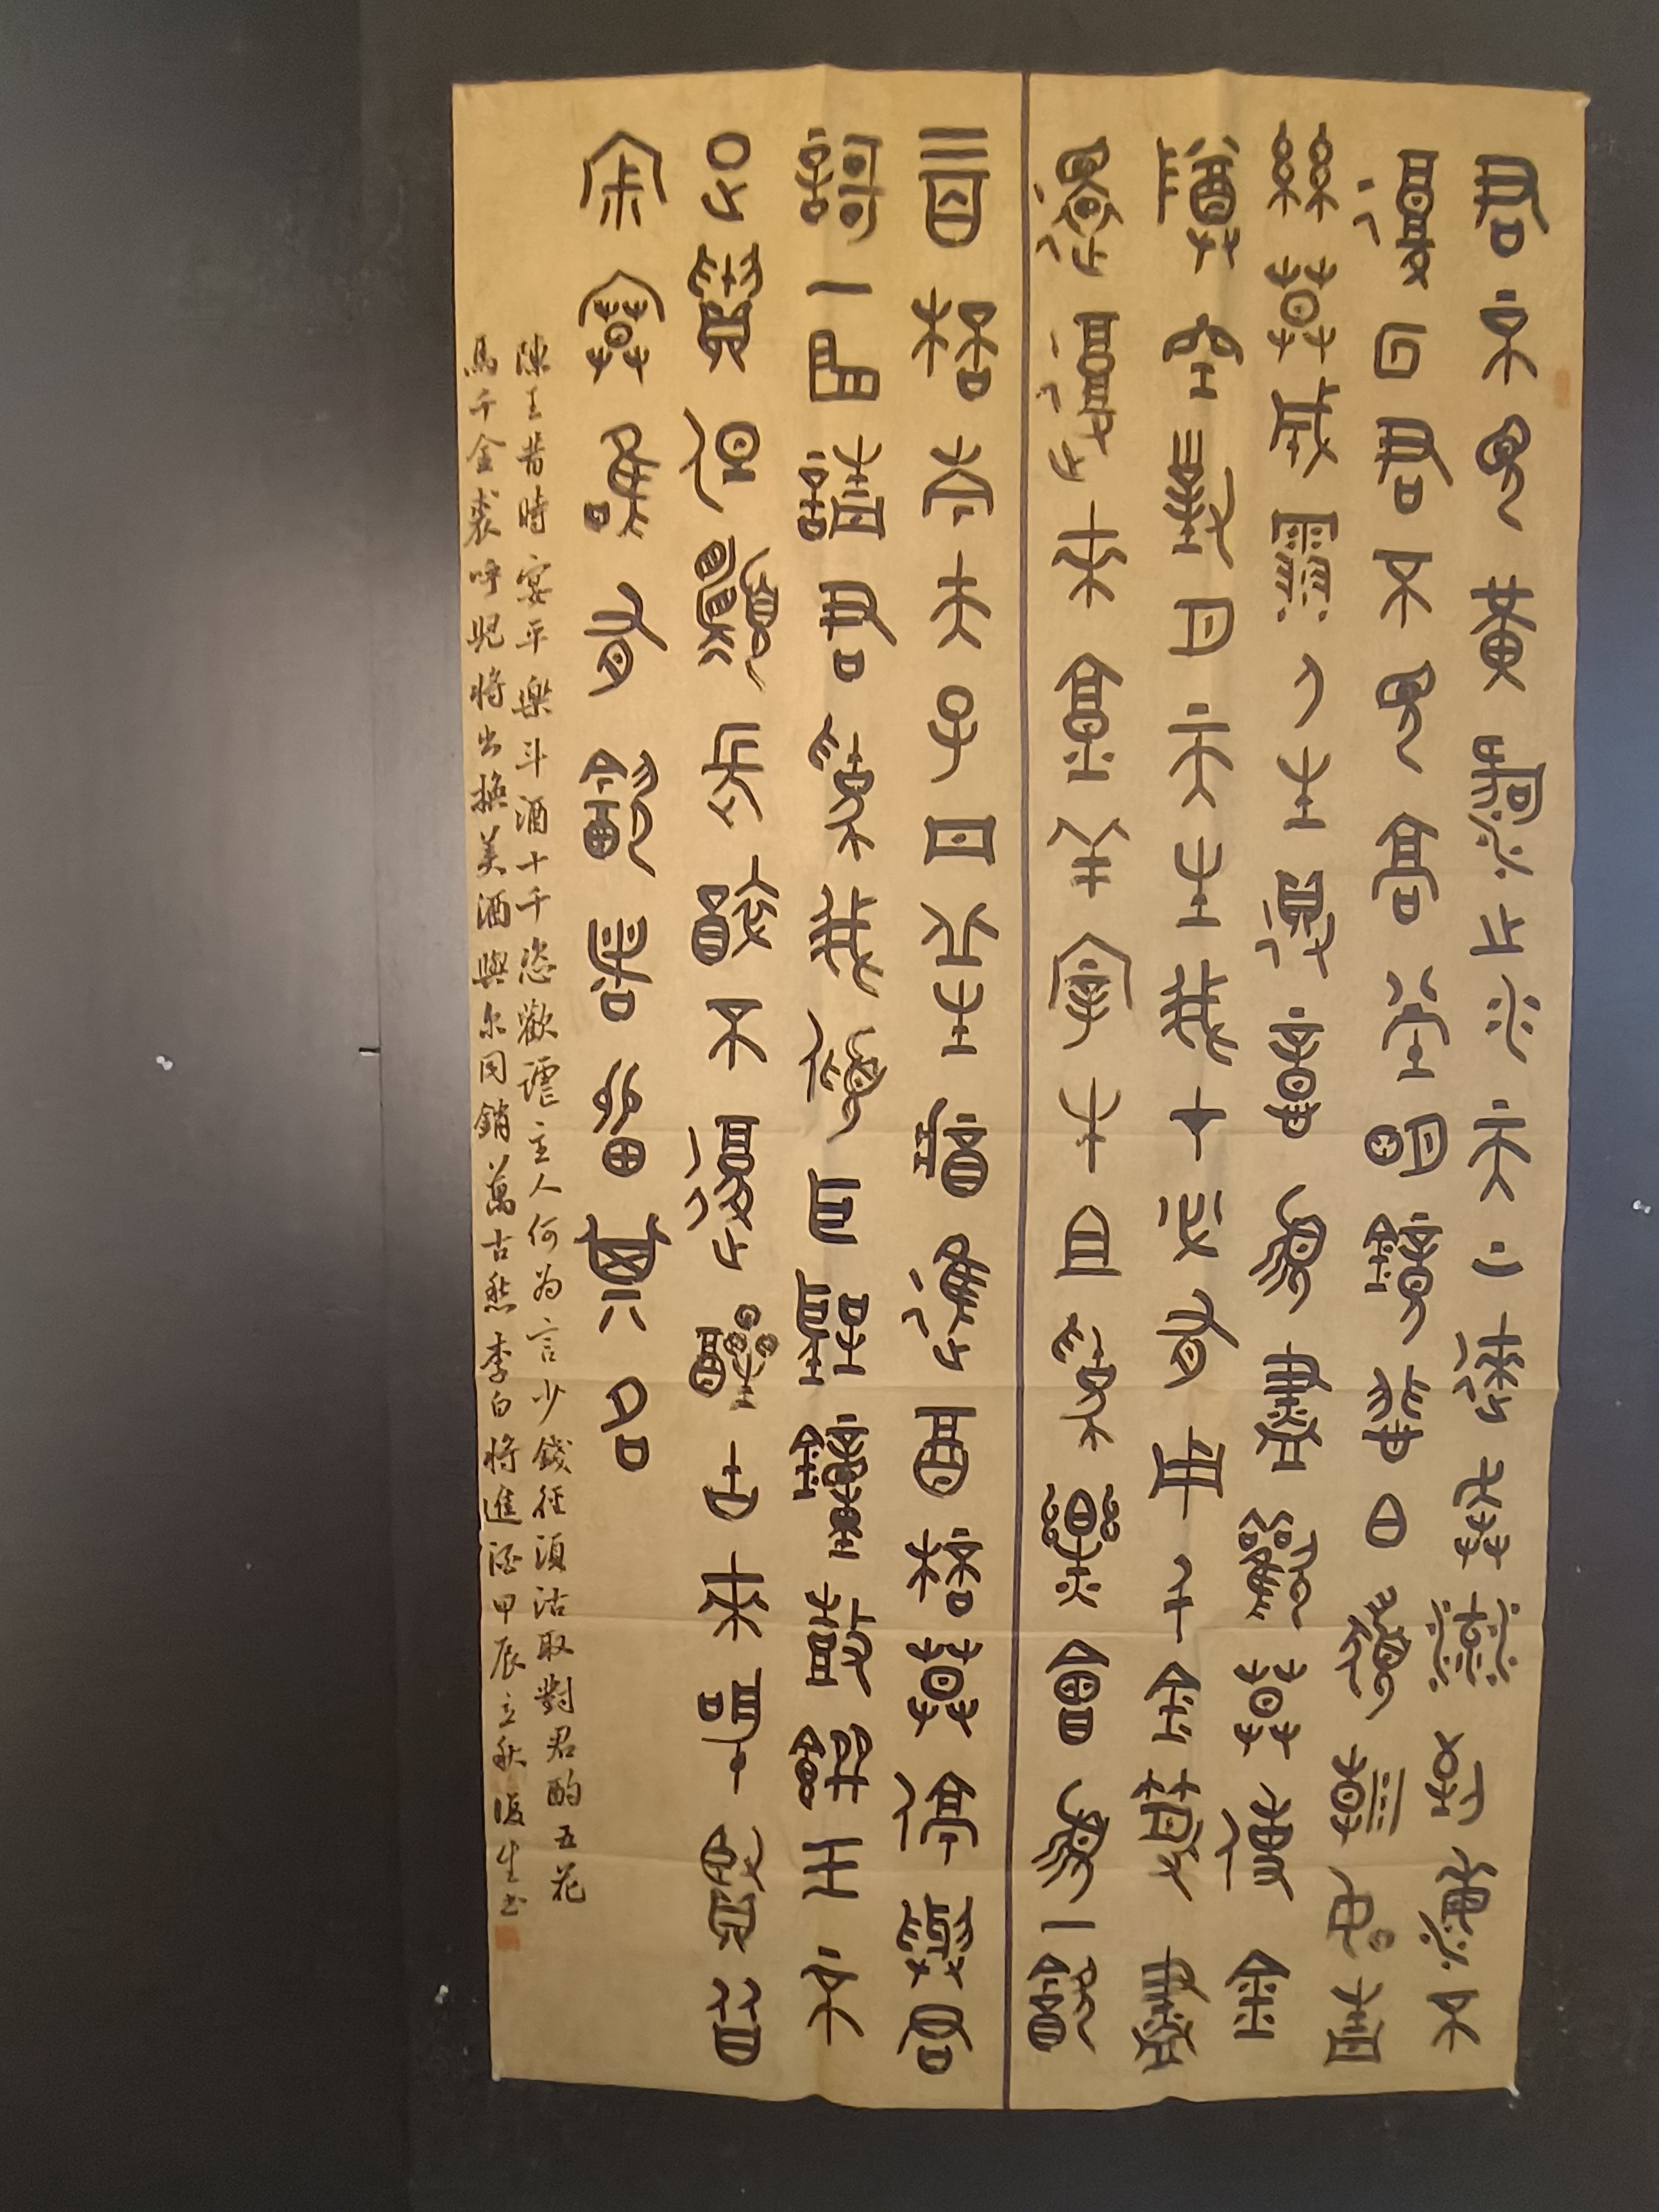 君不見黃河之水天上來奔流到海不
復回君不見高堂明鏡悲白髮朝如青
絲暮成雪人生得意須盡歡莫使金
樽空對月天生我材必有用千金散盡
還復來烹羊宰牛且為樂會須一飲
三百杯岑夫子丹丘生將進酒杯莫停與君
歌一曲請君為我傾耳聽鐘鼓饌玉不
足貴但願長醉不復醒古來聖賢皆
寂寞唯有飲者留其名
陳王昔時宴平樂斗酒十千恣歡謔主人何為言少錢徑須沽取對君酌五花
馬千金裘呼兒將出換美酒與尔同銷萬古愁李白將進酒甲辰立秋復生书